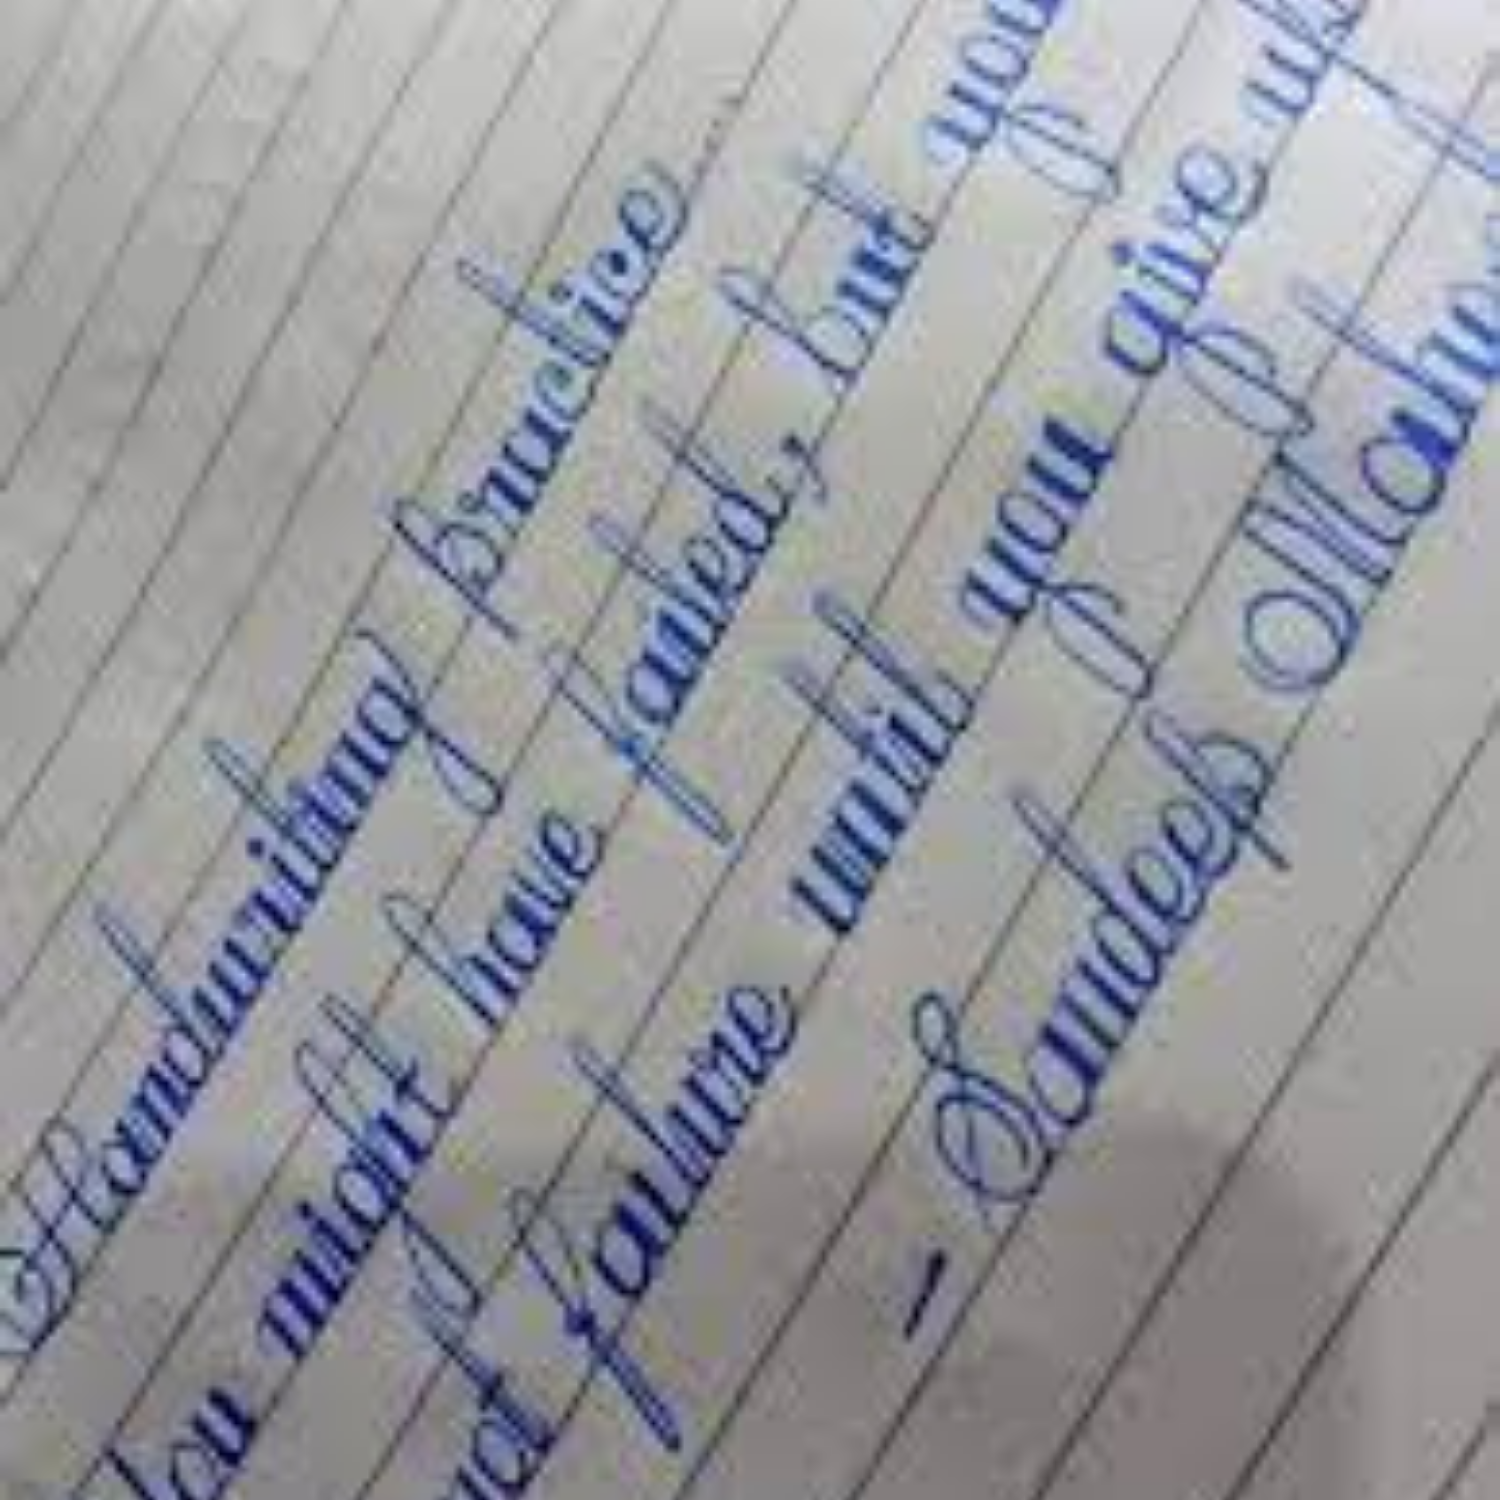 Handwriting practice
You might have failed, but you
not failure until you give up
- Sandeep Mahe